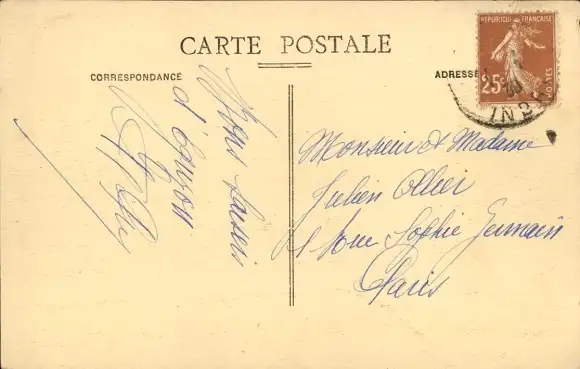 CARTE POSTALE
CORRESPONDANCE
ADRESSE
REPUBLIQUE FRANÇAISE
25c
POSTES
Bons baisers
d'Auzon
Monsieur et Madame
Julien Ollier
1 Rue Sophie Germain
Paris